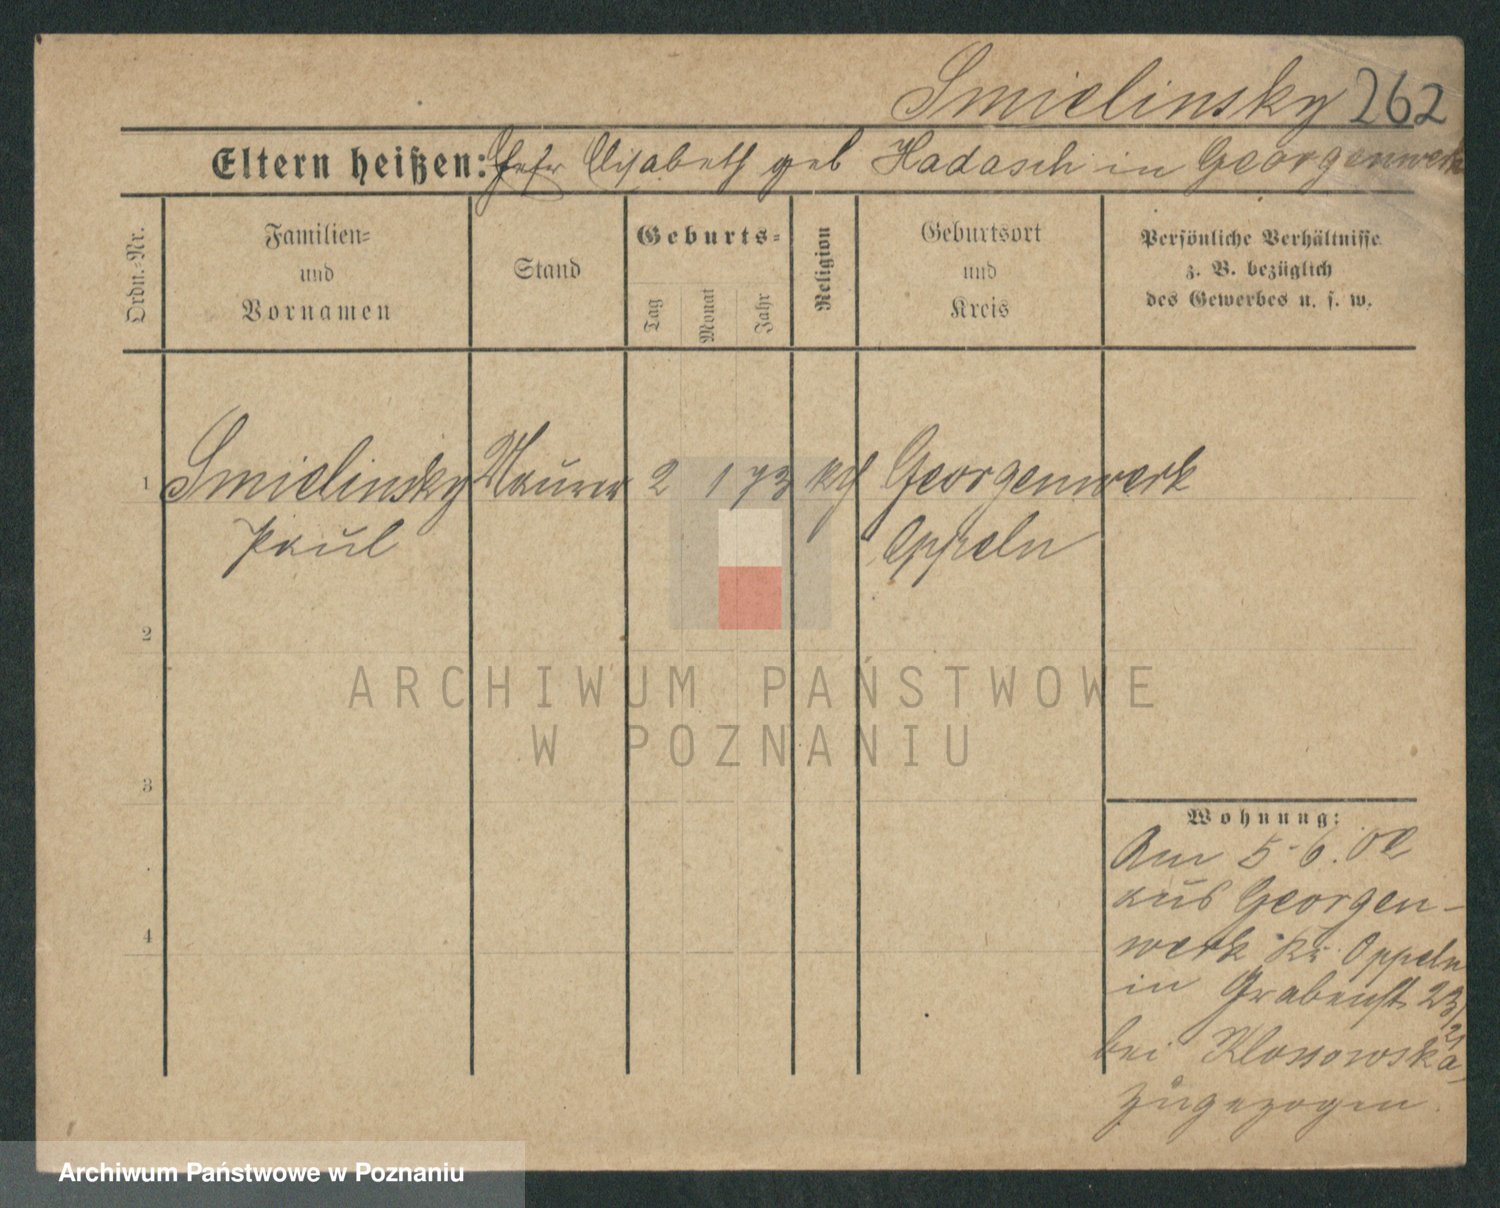 Smielinsky 262
Eltern heißen: Ehefr Elisabeth geb Hadasch in Georgenwerk
Ordn.-Nr.
Familien=
und
Vornamen
Stand
Geburts=
Tag
Monat
Jahr
Religion
Geburtsort
und
Kreis
Persönliche Verhältnisse
z. B. bezüglich
des Gewerbes u. s. w.
1 Smielinsky Maurer 2 1 73 kth Georgenwerk
Paul Oppeln
2
3
4
Wohnung:
Am 5.6.02
aus Georgen-
werk Kr Oppeln
in Grabenst. 23/
bei Klossowska
zugezogen.
ARCHIWUM PAŃSTWOWE
W POZNANIU
Archiwum Państwowe w Poznaniu